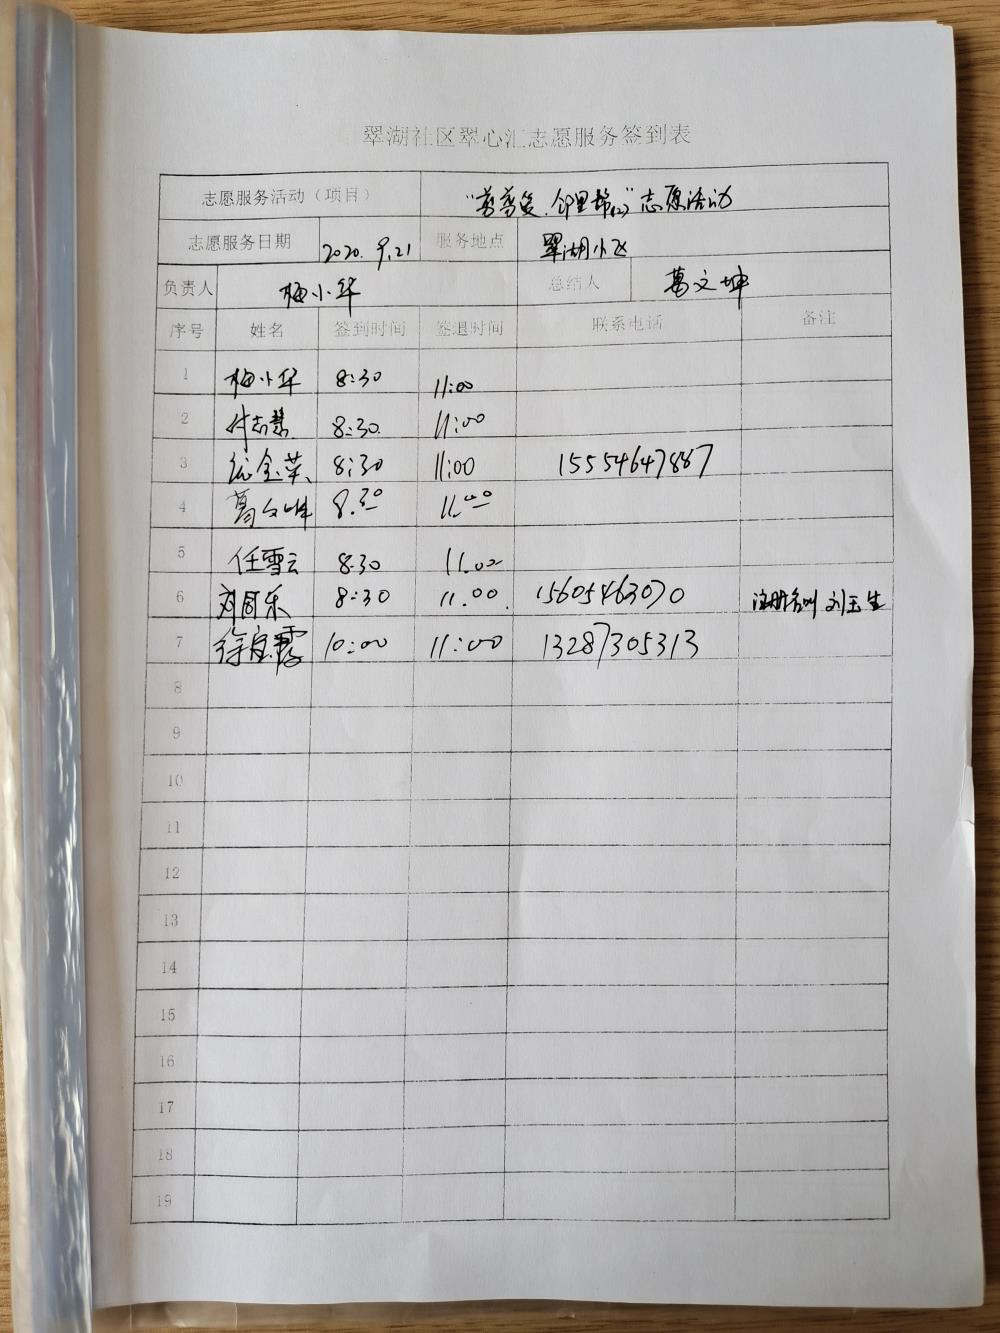 翠湖社区翠心汇志愿服务签到表
志愿服务活动（项目） 志愿活动
志愿服务日期 2020.9.21 服务地点 翠湖小区
负责人 梅小华 总结人 葛文坤
序号 姓名 签到时间 签退时间 联系电话 备注
1 梅小华 8:30 11:00
2 8:30 11:00
3 8:30 11:00 15554647887
4 葛文坤 8.30 11.00
5 任雪云 8.30 11.00
6 8:30 11.00 15605463070 注册名叫 刘玉生
7 10:00 11:00 13287305313
8
9
10
11
12
13
14
15
16
17
18
19